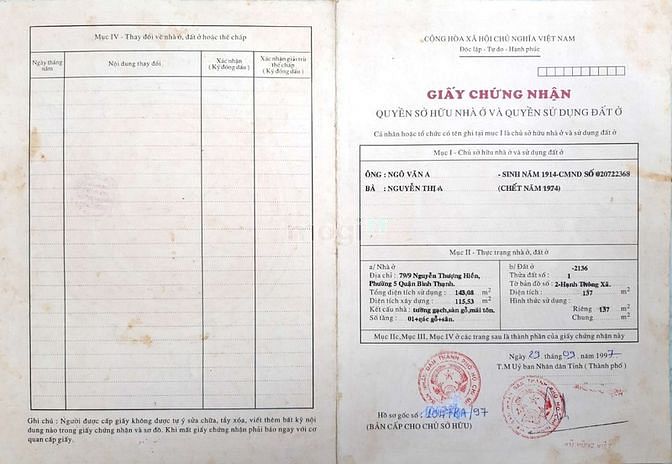 Mục IV - Thay đổi về nhà ở, đất ở hoặc thế chấp
Ngày tháng năm
Nội dung thay đổi
Xác nhận (Ký đóng dấu)
Xác nhận giải trừ thế chấp (Ký đóng dấu)
Ghi chú : Người được cấp giấy không được tự ý sửa chữa, tẩy xóa, viết thêm bất kỳ nội
dung nào trong giấy chứng nhận và sơ đồ. Khi mất giấy chứng nhận phải báo ngay với cơ
quan cấp giấy.
CỘNG HÒA XÃ HỘI CHỦ NGHĨA VIỆT NAM
Độc lập - Tự do - Hạnh phúc
GIẤY CHỨNG NHẬN
QUYỀN SỞ HỮU NHÀ Ở VÀ QUYỀN SỬ DỤNG ĐẤT Ở
Cá nhân hoặc tổ chức có tên ghi tại mục I là chủ sở hữu nhà ở và sử dụng đất ở
Mục I - Chủ sở hữu nhà ở và sử dụng đất ở
ÔNG : NGÔ VĂN A - SINH NĂM 1914-CMND SỐ 020722368
BÀ : NGUYỄN THỊ A (CHẾT NĂM 1974)
mogi
Mục II - Thực trạng nhà ở, đất ở
a/ Nhà ở
79/9 Nguyễn Thượng Hiền,
Phường 5 Quận Bình Thạnh.
Tổng diện tích sử dụng : 143,08 m2
Diện tích xây dựng : 115,53 m2
Kết cấu nhà : tường gạch,sàn gỗ,mái tôn.
Số tầng : 01+các gỗ+sân.
b/ Đất ở -2136
Thửa đất số : 1
Tờ bản đồ số : 2-Hạnh Thông Xã.
Diện tích : 137 m2
Hình thức sử dụng :
Riêng 137 m2
Chung m2
Mục IIc, Mục III, Mục IV ở các trang sau là thành phần của giấy chứng nhận này
Ngày 29 tháng 09 năm 1997
T.M Uỷ ban Nhân dân Tỉnh ( Thành phố )
Hồ sơ gốc số : /97
(BẢN CẤP CHO CHỦ SỞ HỮU)